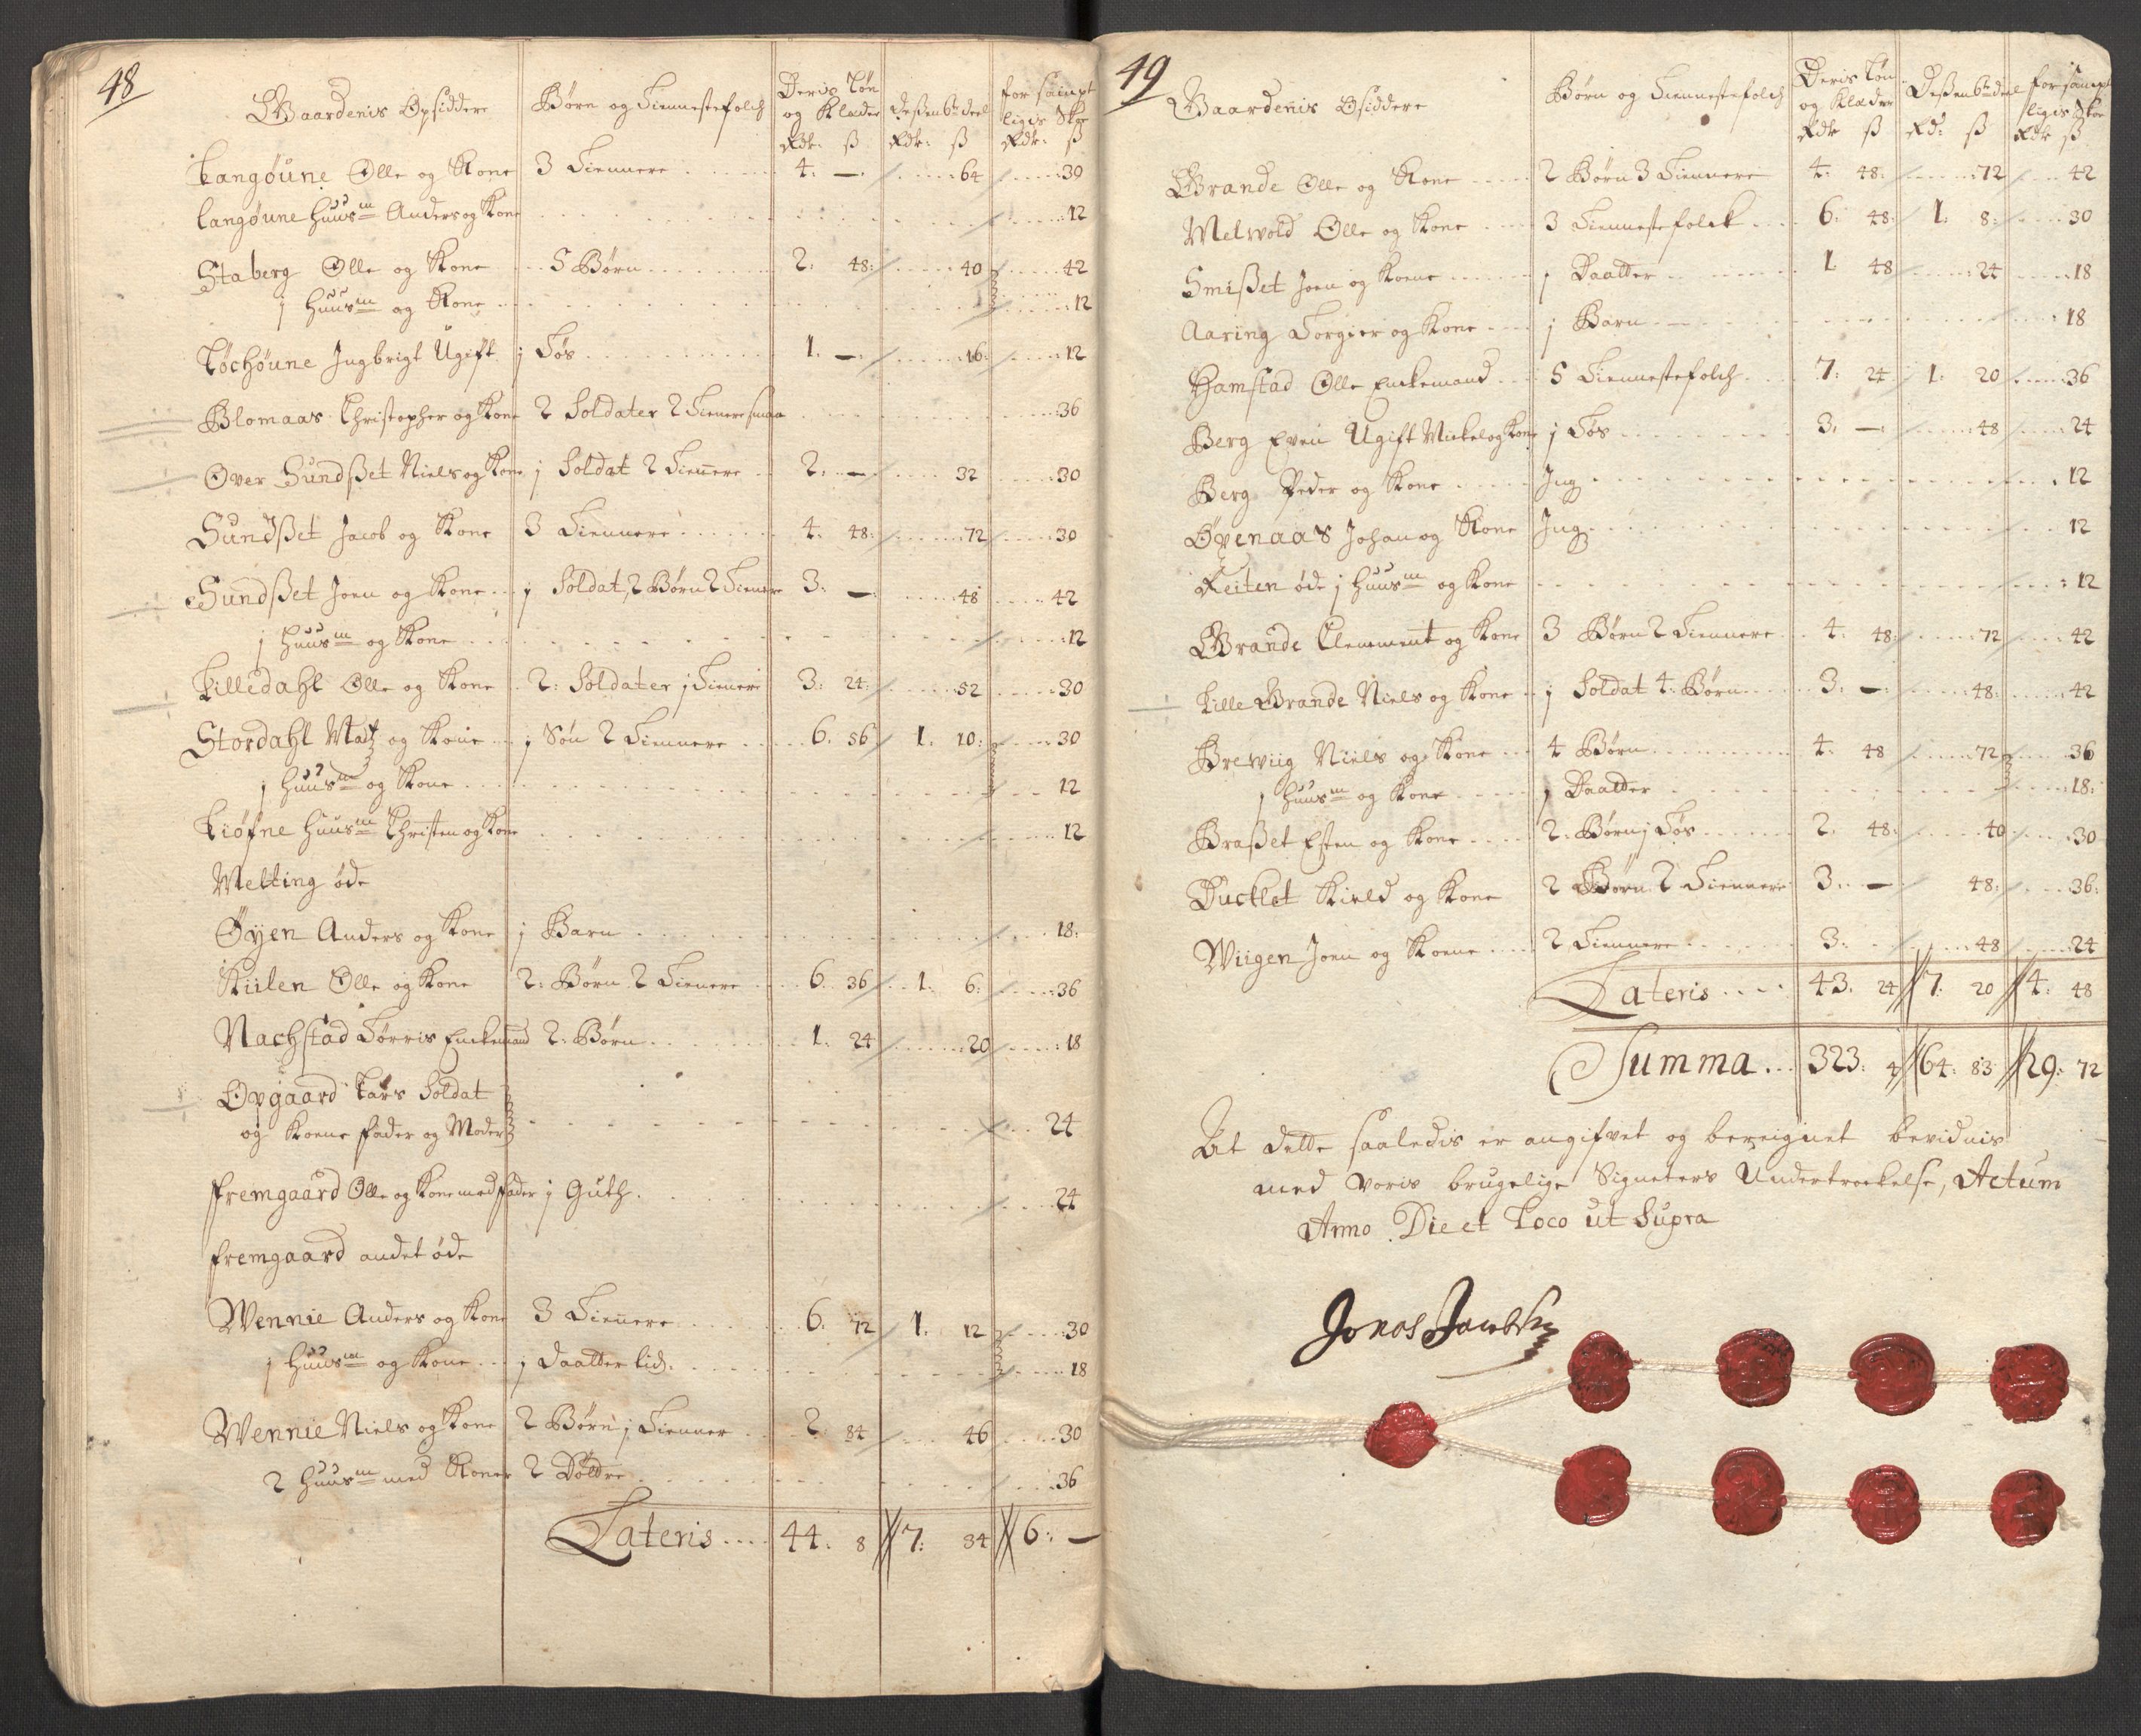 48
Gaardenis Opsiddere Børn og Tiennestefolch Deris Løn og Klæder Deßen 6te deel for samptligis Skoe
Rdr: ß Rdr: ß Rdr: ß
Langøune Olle og Kone 3 Tiennere 4: — 64 30
Langøune Huusm Anders og Kone 12
Staberg Olle og Kone 5 Børn 2: 48: 40 42
j Huusm og Kone 12
Løchøune Ingbrigt Ugift j Tøs 1. — 16: 12
Blomaas Christopher og Kone 2 Soldater 2 Tienere smaa 36
Over Sundßet Niels og Kone j Soldat 2 Tienere 2: — 32 30
Sundßet Jacob og Kone 3 Tiennere 4: 48: 72 30
Sundßet Joen og Kone j Soldat, 2 Børn 2 Tienere 3: — 48 42
j Huusm og Kone 12
Lilledahl Olle og Kone 2: Soldater j Tienere 3: 24: 52 30
Stordahl Matz og Kone j Søn 2 Tiennere 6. 56 1. 10: 30
j Huusm og Kone 12
Liøfne Huusm Christen og Kone 12
Melting øde
Øyen Anders og Kone j Barn 18:
Kiilen Olle og Kone 2: Børn 2 Tienere 6 36 1. 6: 36
Nachstad Tørris Enckemand 2: Børn 1: 24 20 18
Opgaard Lars Soldat
og Koene fader og Moder 24
fremgaard Olle og Kone med fader j Guth 24
fremgaard andet øde
Wennie Anders og Kone 3 Tienere 6: 72 1. 12 30
j Huusm og Kone j Daatter lid: 18
Wennie Niels og Kone 2 Børn j Tienner 2 84 46 30
2 Huusm med Koner 2 Døttre 36
Lateris 44: 8 7: 34 6: —
49
Gaardenis Osiddere Børn og Tiennestefolch Deris Løn og Klæder Deßen 6te deel for samptligis Skoe
Rdr ß Rd: ß Rdr ß
Grande Olle og Kone 2 Børn 3 Tiennere 4: 48: 72 42
Melwold Olle og Kone 3 Tiennestefolck 6: 48 1: 8: 30
Smißet Joen og Koene j Daatter 1 48 24 18
Aaring Torgier og Kone j Barn 18
Hamstad Olle Enckemand 5 Tiennestefolch 7: 24 1: 20 36
Berg Even Ugift Mickel og Kone j Tøs 3. — 48 24
Berg Peder og Kone Ing 12
Øvenaas Johan og Kone Ing 12
Reiten øde j Huusm og Kone 12
Grande Clemment og Kone 3 Børn 2 Tiennere 4: 48: 72 42
Lille Grande Niels og Kone j Soldat 4: Børn 3: — 48: 42
Brewiig Niels og Kone 4 Børn 4: 48 72 36
j Huusm og Kone j Daatter 18:
Braßet Esten og Kone 2: Børn j Tøs 2. 48: 40 30
Ducklet Kield og Kone 2 Børn 2 Tiennere 3: — 48: 36:
Wiigen Joen og Koene 2 Tiennere 3: 48 24
Lateris 43: 24 7: 20 4: 48
Summa 323: 4 64: 83 29: 72
At dette saaledis er angifvet og bereignet bevidnis
med voris brugelige Signeters Undertrøckelse, Actum
Anno Die et Loco ut Supra
Jonas Jacobsen